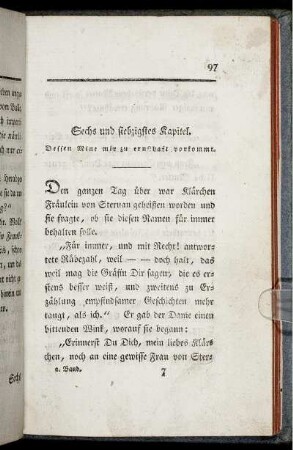 97
Sechs und siebzigstes Kapitel.
Dessen Mine mir zu ernsthaft vorkommt.
Den ganzen Tag über war Klärchen
Fräulein von Sternau geheißen worden und
sie fragte, ob sie diesen Namen für immer
behalten solle.
„Für immer, und mit Recht! antwor-
tete Rübezahl, weil — doch halt, das
weil mag die Gräfin Dir sagen; die es er-
stens besser weiß, und zweitens zu Er-
zählung empfindsamer Geschichten mehr
taugt, als ich.“ Er gab der Dame einen
bittenden Wink, worauf sie begann:
„Erinnerst Du Dich, mein liebes Klär-
chen, noch an eine gewisse Frau von Ster-
2. Band. 7
Sechs